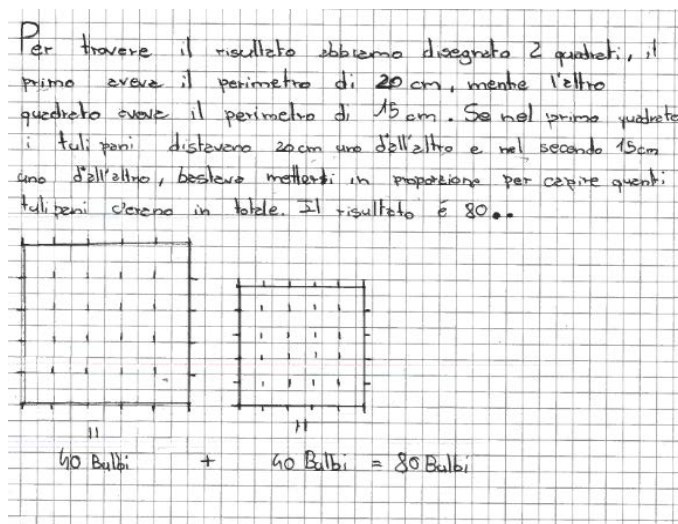 Per trovare il risultato abbiamo disegnato 2 quadrati, il
primo aveva il perimetro di 20 cm, mentre l'altro
quadrato aveva il perimetro di 15 cm. Se nel primo quadrato
i tulipani distavano 20 cm uno dall'altro e nel secondo 15cm
uno dall'altro, bastava metterli in proporzione per capire quanti
tulipani c'erano in totale. Il risultato é 80..
= =
40 Bulbi + 40 Bulbi = 80 Bulbi